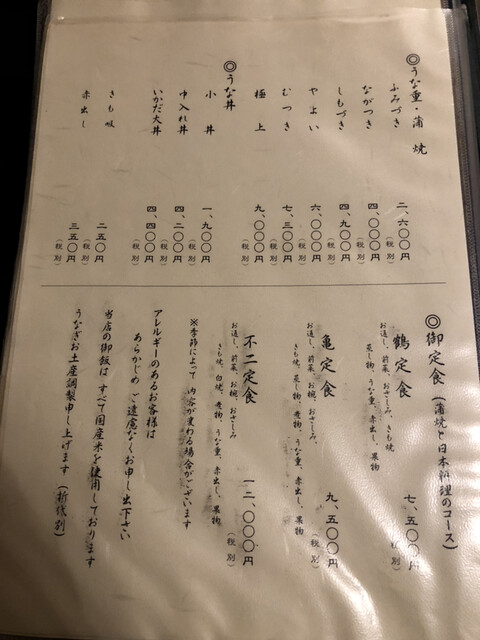 ◎うな重・蒲焼
ふみづき 二、六〇〇円(税別)
ながつき 四、〇〇〇円(税別)
しもづき 四、九〇〇円(税別)
やよい 六、〇〇〇円(税別)
むつき 七、三〇〇円(税別)
極上 九、〇〇〇円(税別)
◎うな丼
小丼 一、九〇〇円(税別)
中入れ丼 四、二〇〇円(税別)
いかだ大丼 四、四〇〇円(税別)
きも吸 二五〇円(税別)
赤出し 三五〇円(税別)
◎御定食(蒲焼と日本料理のコース)
鶴定食 七、五〇〇円(税別)
お通し、前菜、おさしみ、きも焼
蒸し物、うな重、赤出し、果物
亀定食 九、五〇〇円(税別)
お通し、前菜、お椀、おさしみ、
きも焼、蒸し物、煮物、うな重、赤出し、果物
不二定食 一二、〇〇〇円(税別)
お通し、前菜、お椀、おさしみ
きも焼、白焼、煮物、うな重、赤出し、果物
※季節によって内容が変わる場合がございます
アレルギーのあるお客様は
あらかじめご遠慮なくお申し出下さい
当店の御飯はすべて国産米を使用しております
うなぎお土産調製申し上げます(折代別)